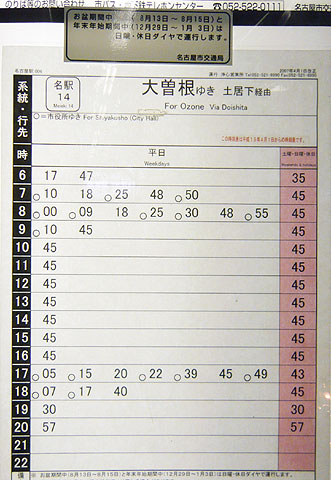 のりば案内のお問い合わせ 市バス・地下鉄テレホンセンター ☎052-522-0111
お盆期間中(8月13日〜8月15日)と
年末年始期間中(12月29日〜1月3日)は
日曜・休日ダイヤで運行します。
名古屋市交通局
系統・行先
名駅
14
Meieki 14
大曽根ゆき 土居下経由
For Ozone Via Doishita
○=市役所ゆき For Shiyakusho (City Hall)
時
平日
Weekdays
土曜・日曜・休日
6 17 47 35
7 ○10 18 ○25 48 ○50 45
8 ○00 ○09 18 ○25 ○30 ○48 ○55 45
9 ○10 45 45
10 45 45
11 45 45
12 45 45
13 45 45
14 45 45
15 45 45
16 45 45
17 ○05 ○15 20 ○22 ○39 45 ○49 43
18 ○07 ○17 40 45
19 30 30
20 57 57
21
22
備 ※ お盆期間中(8月13日〜8月15日)と年末年始期間中(12月29日〜1月3日)は日曜・休日ダイヤで運行します。